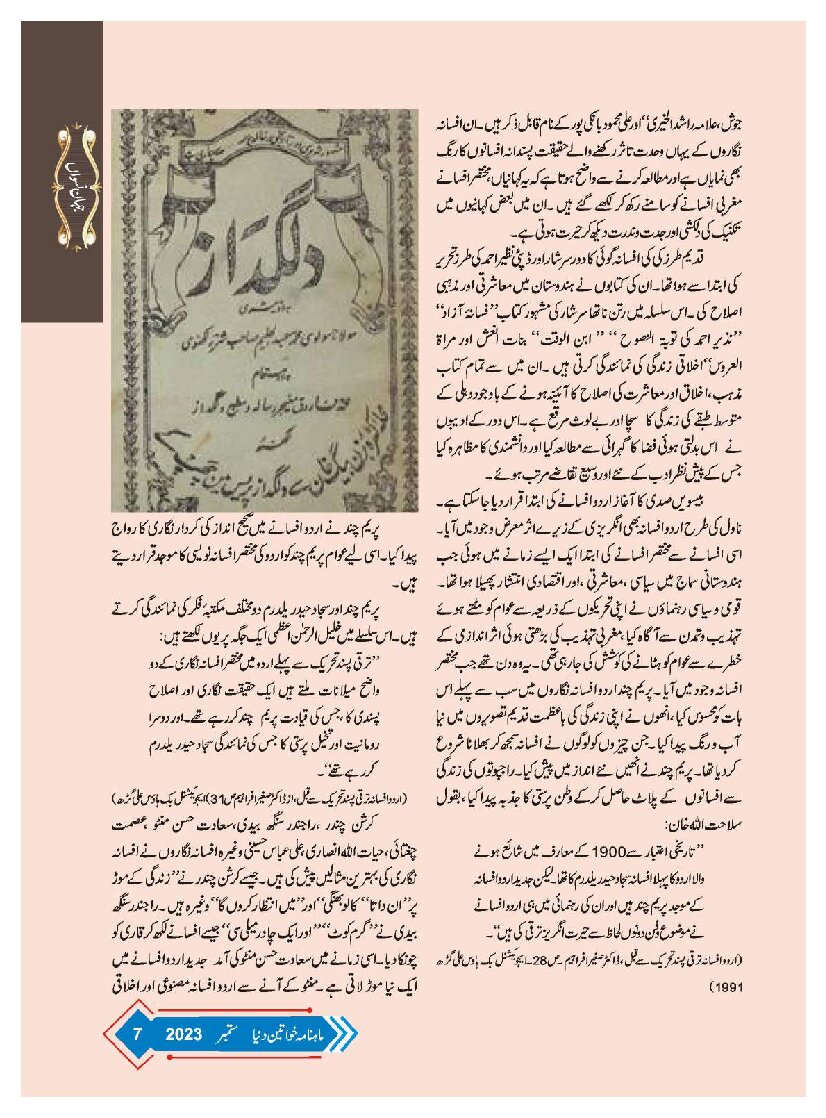 جوش، علامہ راشد الخیریؒ اور علی محمود یا بانکی پور کے نام قابل ذکر ہیں۔ ان افسانہ
نگاروں کے یہاں وحدت تاثر رکھنے والے حقیقت پسندانہ افسانوں کا رنگ
بھی نمایاں ہے اور مطالعہ کرنے سے واضح ہوتا ہے کہ یہ کہانیاں، مختصر افسانے
مغربی افسانے کو سامنے رکھ کر لکھے گئے ہیں۔ ان میں بعض کہانیوں میں
تکنیک کی دلکشی اور جدت وندرت دیکھ کر حیرت ہوتی ہے۔
قدیم طرز کی کی افسانہ گوئی کا دور سرشار اور ڈپٹی نظیر احمد کی طرز تحریر
کی ابتدا سے ہوا تھا۔ ان کی کتابوں نے ہندوستان میں معاشرتی اور مذہبی
اصلاح کی۔ اس سلسلہ میں رتن ناتھ سرشار کی مشہور کتاب ”فسانۂ آزاد“
”نذیر احمد کی توبۃ النصوح“ ”ابن الوقت“ بنات النعش اور مراۃ
العروس“ اخلاقی زندگی کی نمائندگی کرتی ہیں۔ ان میں سے تمام کتاب
مذہب، اخلاق اور معاشرت کی اصلاح کا آئینہ ہونے کے باوجود دہلی کے
متوسط طبقے کی زندگی کا سچا اور بے لوث مرقع ہے۔ اس دور کے ادیبوں
نے اس بدلتی ہوئی فضا کا گہرائی سے مطالعہ کیا اور دانشمندی کا مظاہرہ کیا
جس کے پیش نظر ادب کے نئے اور وسیع تقاضے مرتب ہوئے۔
بیسویں صدی کا آغاز اردو افسانے کی ابتدا قرار دیا جا سکتا ہے۔
ناول کی طرح اردو افسانہ بھی انگریزی کے زیرے اثر معرض وجود میں آیا۔
اسی افسانے سے مختصر افسانے کی ابتدا ایک ایسے زمانے میں ہوئی جب
ہندوستانی سماج میں سیاسی، معاشرتی، اور اقتصادی انتشار پھیلا ہوا تھا۔
قومی و سیاسی رہنماؤں نے اپنی تحریکوں کے ذریعہ سے عوام کو مٹتے ہوئے
تہذیب و تمدن سے آگاہ کیا، مغربی تہذیب کی بڑھتی ہوئی اثر اندازی کے
خطرے سے عوام کو ہٹانے کی کوشش کی جا رہی تھی۔ یہ وہ دن تھے جب مختصر
افسانہ وجود میں آیا۔ پریم چند اردو افسانہ نگاروں میں سب سے پہلے اس
بات کو محسوس کیا، انھوں نے اپنی زندگی کی باعظمت قدیم تصویروں میں نیا
آب و رنگ پیدا کیا۔ جن چیزوں کو لوگوں نے افسانہ سمجھ کر بھلانا شروع
کر دیا تھا۔ پریم چند نے انھیں نئے انداز میں پیش کیا۔ راجپوتوں کی زندگی
سے افسانوں کے پلاٹ حاصل کرکے وطن پرستی کا جذبہ پیدا کیا، بقول
سلامت اللہ خان:
”تاریخی اعتبار سے 1900 کے معارف میں شائع ہونے
والا اردو کا پہلا افسانہ سجاد حیدر یلدرم کا تھا۔ لیکن جدید اردو افسانہ
کے موجد پریم چند ہیں اور ان کی رہنمائی میں ہی اردو افسانے
نے موضوع و فن دونوں لحاظ سے حیرت انگریز ترقی کی ہیں“۔
(اردو افسانہ ترقی پسند تحریک سے قبل، ڈاکٹر صغیر افراہیم۔ ص 28۔ ایجوکیشنل بک ہاؤس علی گڑھ
1991)
دلگداز
مولانا مولوی محمد عبد الحلیم صاحب شرر لکھنوی
پریم چند نے اردو افسانے میں صحیح انداز کی کردار نگاری کا رواج
پیدا کیا۔ اسی لیے عوام پریم چند کو اردو کی مختصر افسانہ نویسی کا موجد قرار دیتے
ہیں۔
پریم چند اور سجاد حیدر یلدرم دو مختلف مکتبۂ فکر کی نمائندگی کرتے
ہیں۔ اس سلسلے میں خلیل الرحمٰن اعظمی ایک جگہ پر یوں لکھتے ہیں:
”ترقی پسند تحریک سے پہلے اردو میں مختصر افسانہ نگاری کے دو
واضح میلانات ملتے ہیں ایک حقیقت نگاری اور اصلاح
پسندی کا، جس کی قیادت پریم چند کر رہے تھے۔ اور دوسرا
رومانیت اور تخیل پرستی کا جس کی نمائندگی سجاد حیدر یلدرم
کر رہے تھے“۔
(اردو افسانہ ترقی پسند تحریک سے قبل، از ڈاکٹر صغیر افراہیم ص 31) ایجوکیشنل بک ہاؤس علی گڑھ)
کرشن چندر، راجندر سنگھ بیدی، سعادت حسن منٹو، عصمت
چغتائی، حیات اللہ انصاری، علی عباس حسینی وغیرہ افسانہ نگاروں نے افسانہ
نگاری کی بہترین مثالیں پیش کی ہیں۔ جیسے کرشن چندر نے ”زندگی کے موڑ
پر“ ان داتا“ ”کالو بھنگی“ اور ”میں انتظار کروں گا“ وغیرہ ہیں۔ راجندر سنگھ
بیدی نے ”گرم کوٹ“ ”اور ایک چادر میلی سی“ جیسے افسانے لکھ کر قاری کو
چونکا دیا۔ اسی زمانے میں سعادت حسن منٹو کی آمد جدید اردو افسانے میں
ایک نیا موڑ لاتی ہے۔ منٹو کے آنے سے اردو افسانہ مصنوعی اور اخلاقی
جہان نسواں
ماہنامہ خواتین دنیا ستمبر 2023 7